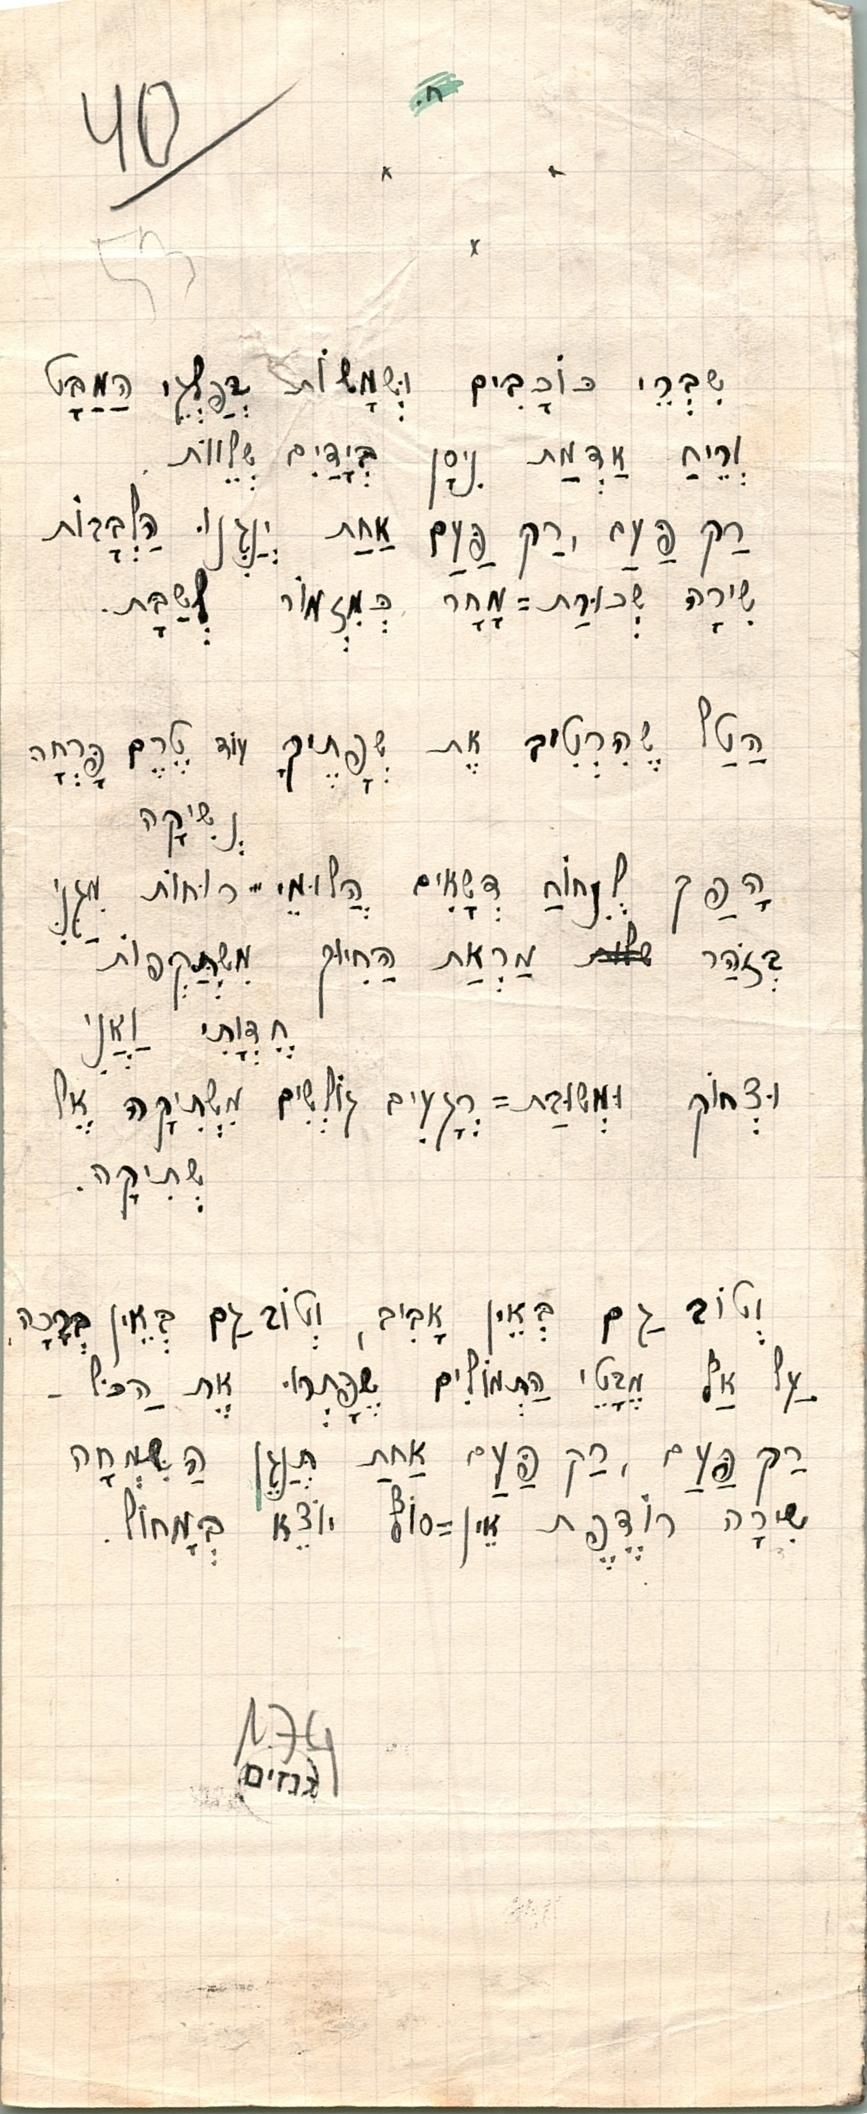 40
ח.
x x
x
שִׁבְרֵי כּוֹכָבִים וּשְׁמָשׁוֹת בְּפַלְגֵי הַמַּבָּט
וְרֵיחַ אַדְמַת נִיסָן בְּיָדַיִם שְׁלֵווֹת
רַק פַּעַם, רַק פַּעַם אַחַת יְנַגְּנוּ הַלְּבָבוֹת
שִׁירָה שְׁכוּרַת=מָחָר כְּמִזְמוֹר לְשַׁבָּת.
הַטַּל שֶׁהִרְטִיב אֶת שְׂפָתֶיךָ עוֹד טֶרֶם פָּרְחָה
נְשִׁיקָה
הָפַךְ לְנִחוֹחַ דְּשָׁאִים הֲלוּמֵי=רוּחוֹת מִגַּנִּי
בְּזֹהַר מַרְאַת הַחִיּוּךְ מִשְׁתַּקְּפוֹת
חֶדְוָתִי וַאֲנִי
וּצְחוֹק וּמְשׁוּבַת=רְגָעִים גּוֹלְשִׁים מִשְּׁתִיקָה אֶל
שְׁתִיקָה.
וְטוֹב גַּם בְּאֵין אָבִיב, וְטוֹב גַּם בְּאֵין בְּרָכָה,
עַל אַל מַבָּטֵי הַתְּמוֹלִים שֶׁפָּתְרוּ אֶת הַכֹּל –
רַק פַּעַם, רַק פַּעַם אַחַת תְּנַגֵּן הַשִּׂמְחָה
שִׁירָה רוֹדֶפֶת אֵין=סוֹף יוֹצֵא בְּמָחוֹל.
174
גנזים